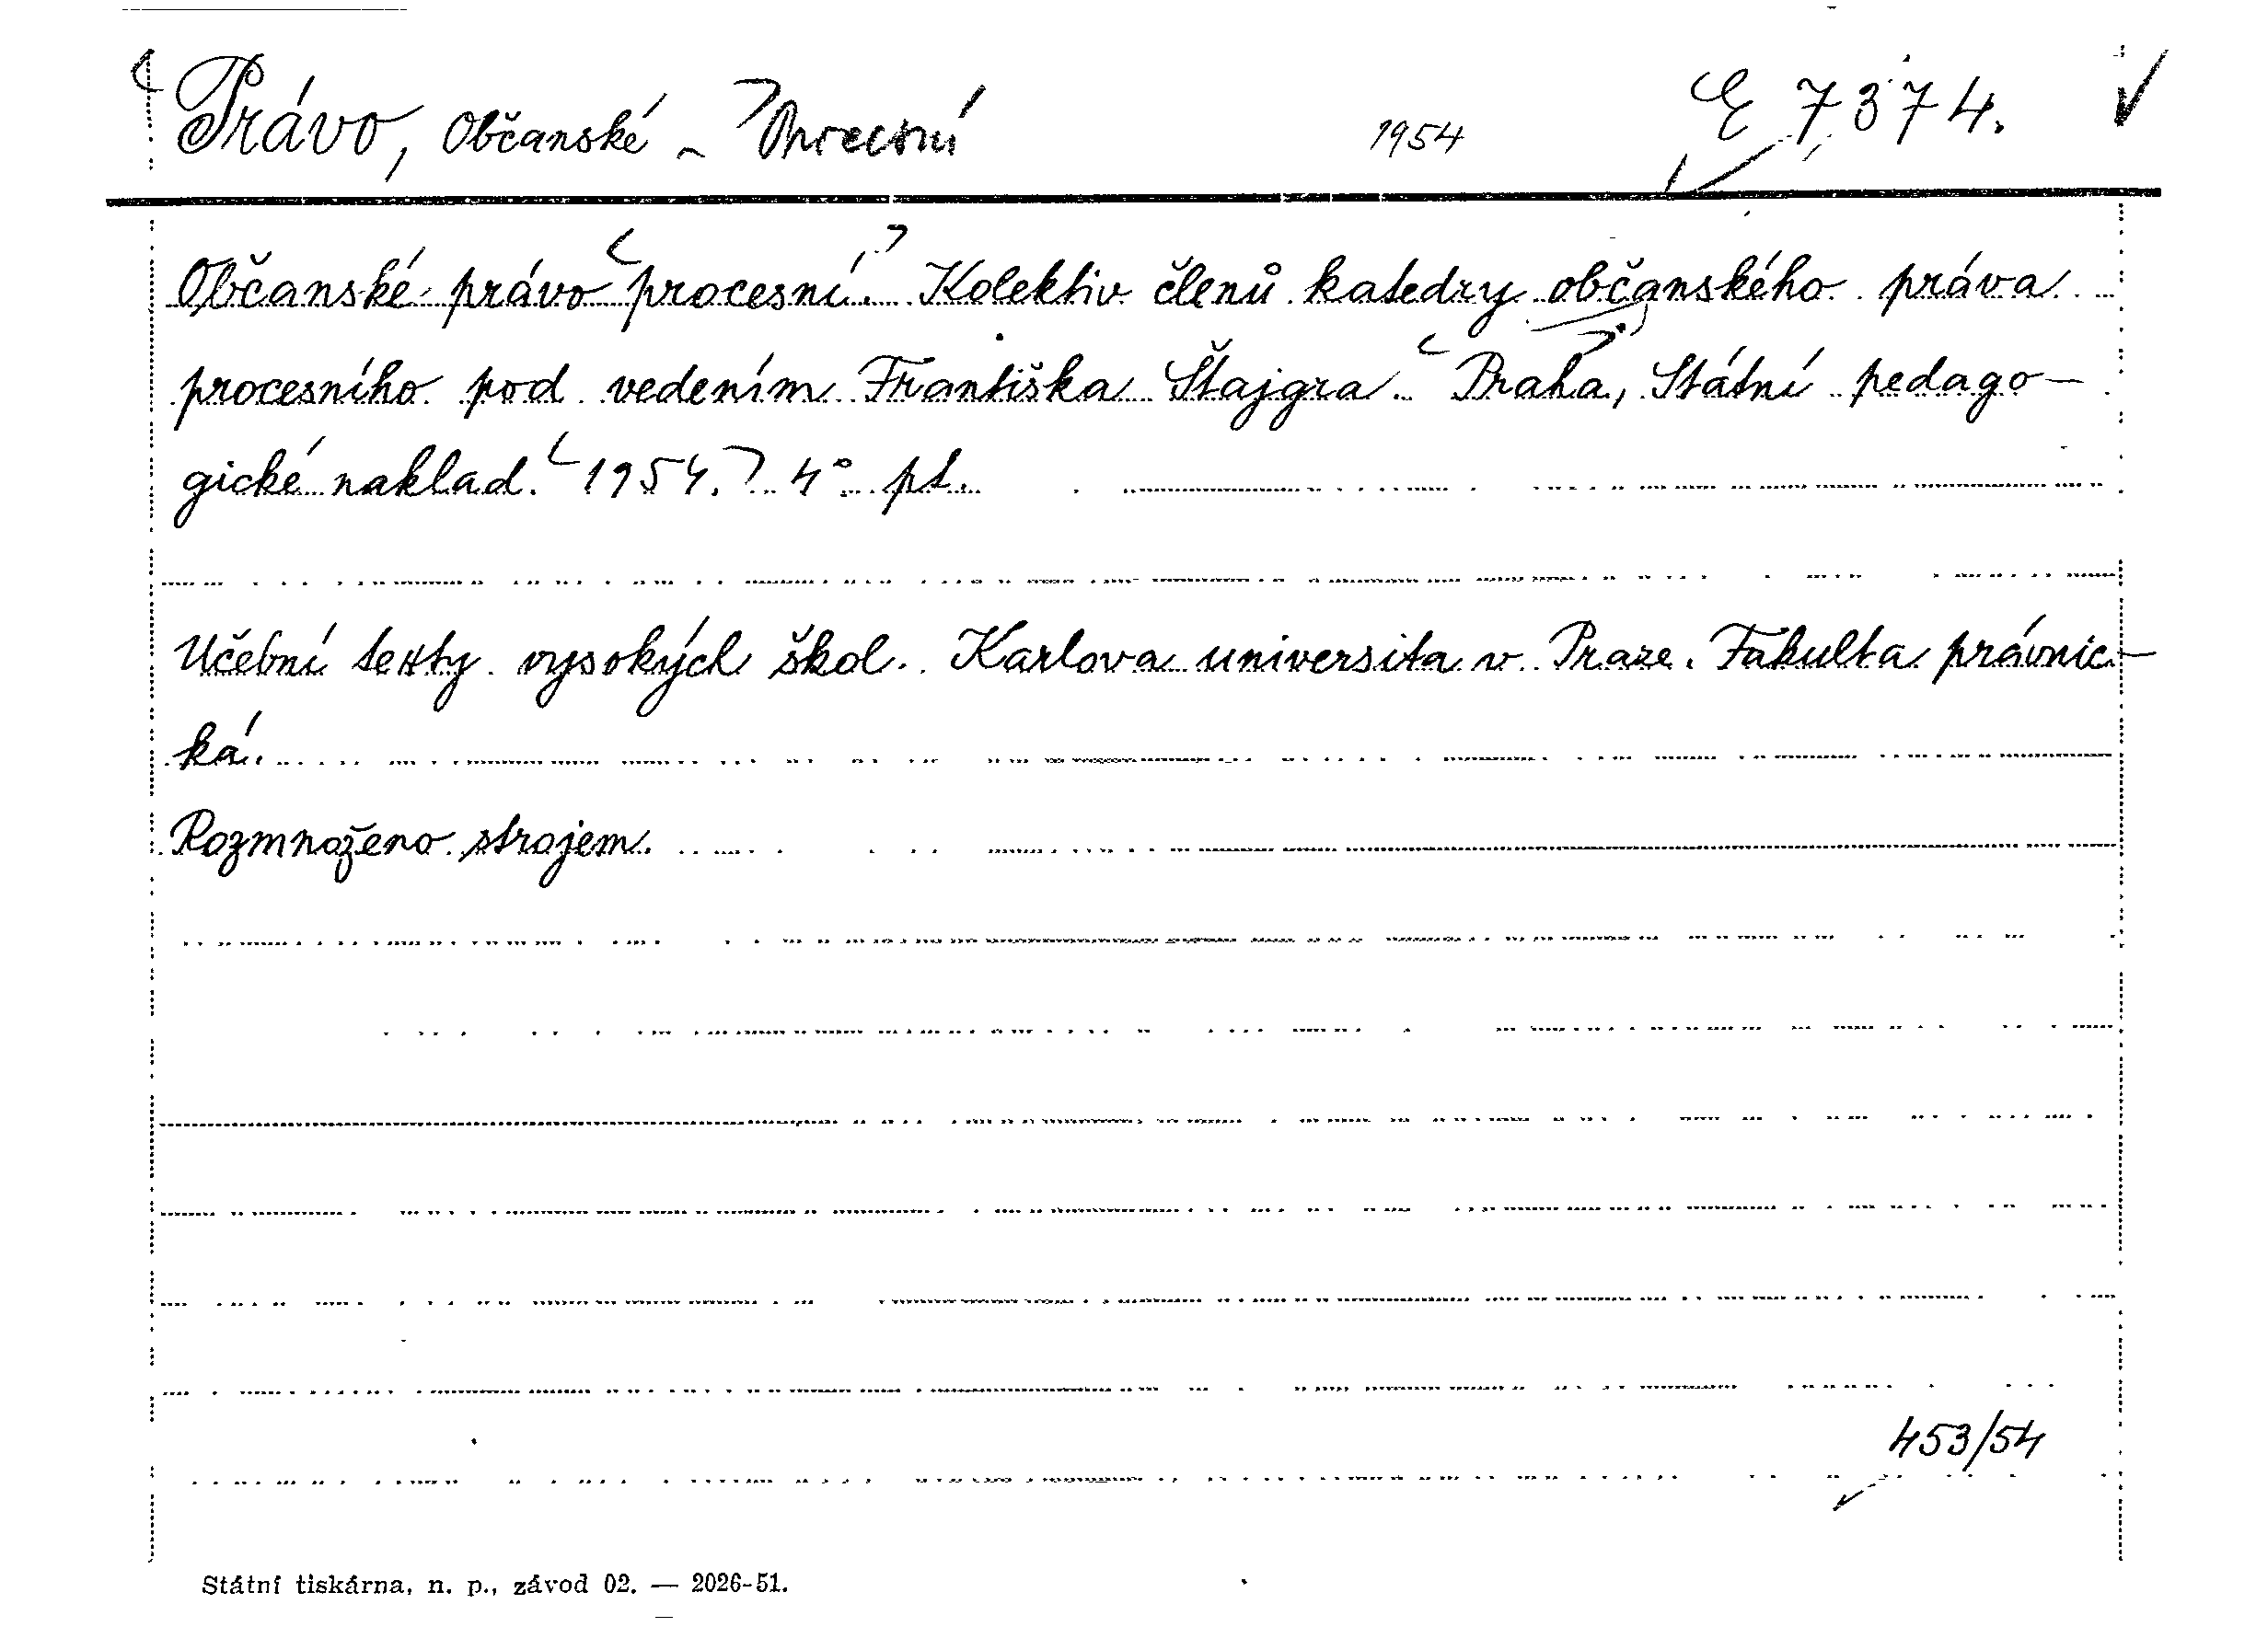 Právo, Občanské - procesní 1954 E 7374.
Občanské právo procesní. Kolektiv členů katedry občanského práva
procesního pod vedením Františka Štajgra. Praha, Státní pedago-
gické naklad. 1954. 4° pt.
Učební texty vysokých škol. Karlova universita v Praze. Fakulta právnic-
ká.
Rozmnoženo strojem.
453/54
Státní tiskárna, n. p., závod 02. — 2026-51.